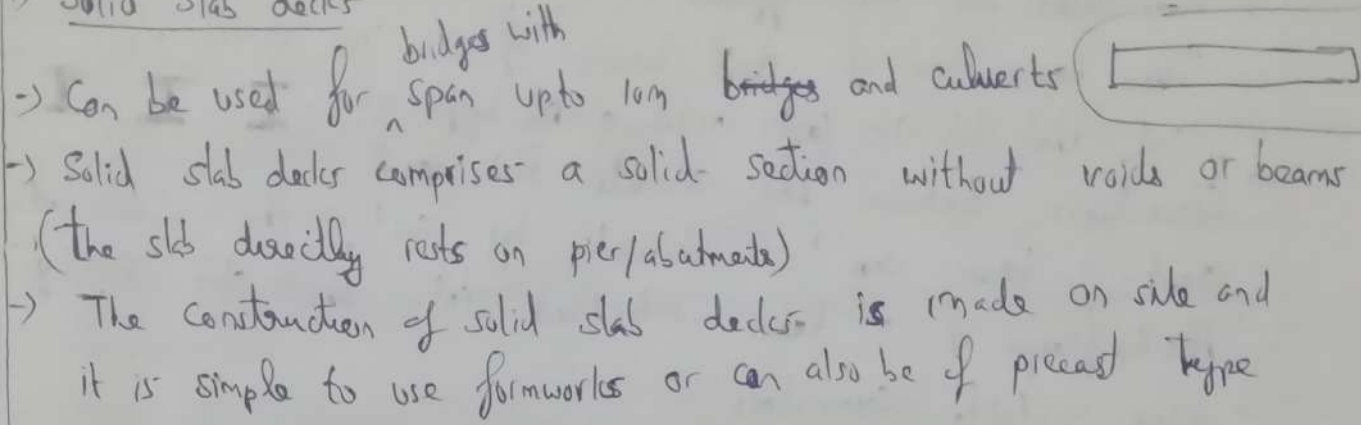 Solid slab decks
bridges with
-> Can be used for ^ span upto 10m bridges and culverts
-> Solid slab decks comprises a solid section without voids or beams
(the slab directly rests on pier/abutments)
-> The construction of solid slab decks is made on site and
it is simple to use formworks or can also be of precast type